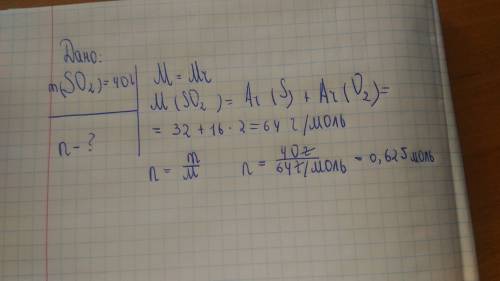 Дано:
m(SO₂)=40г
n-?
M = Mr
M (SO₂) = Ar (S) + Ar (O₂)=
= 32 + 16 · 2 = 64 г/моль
n = m/M n = 40г/64г/моль = 0,625 моль